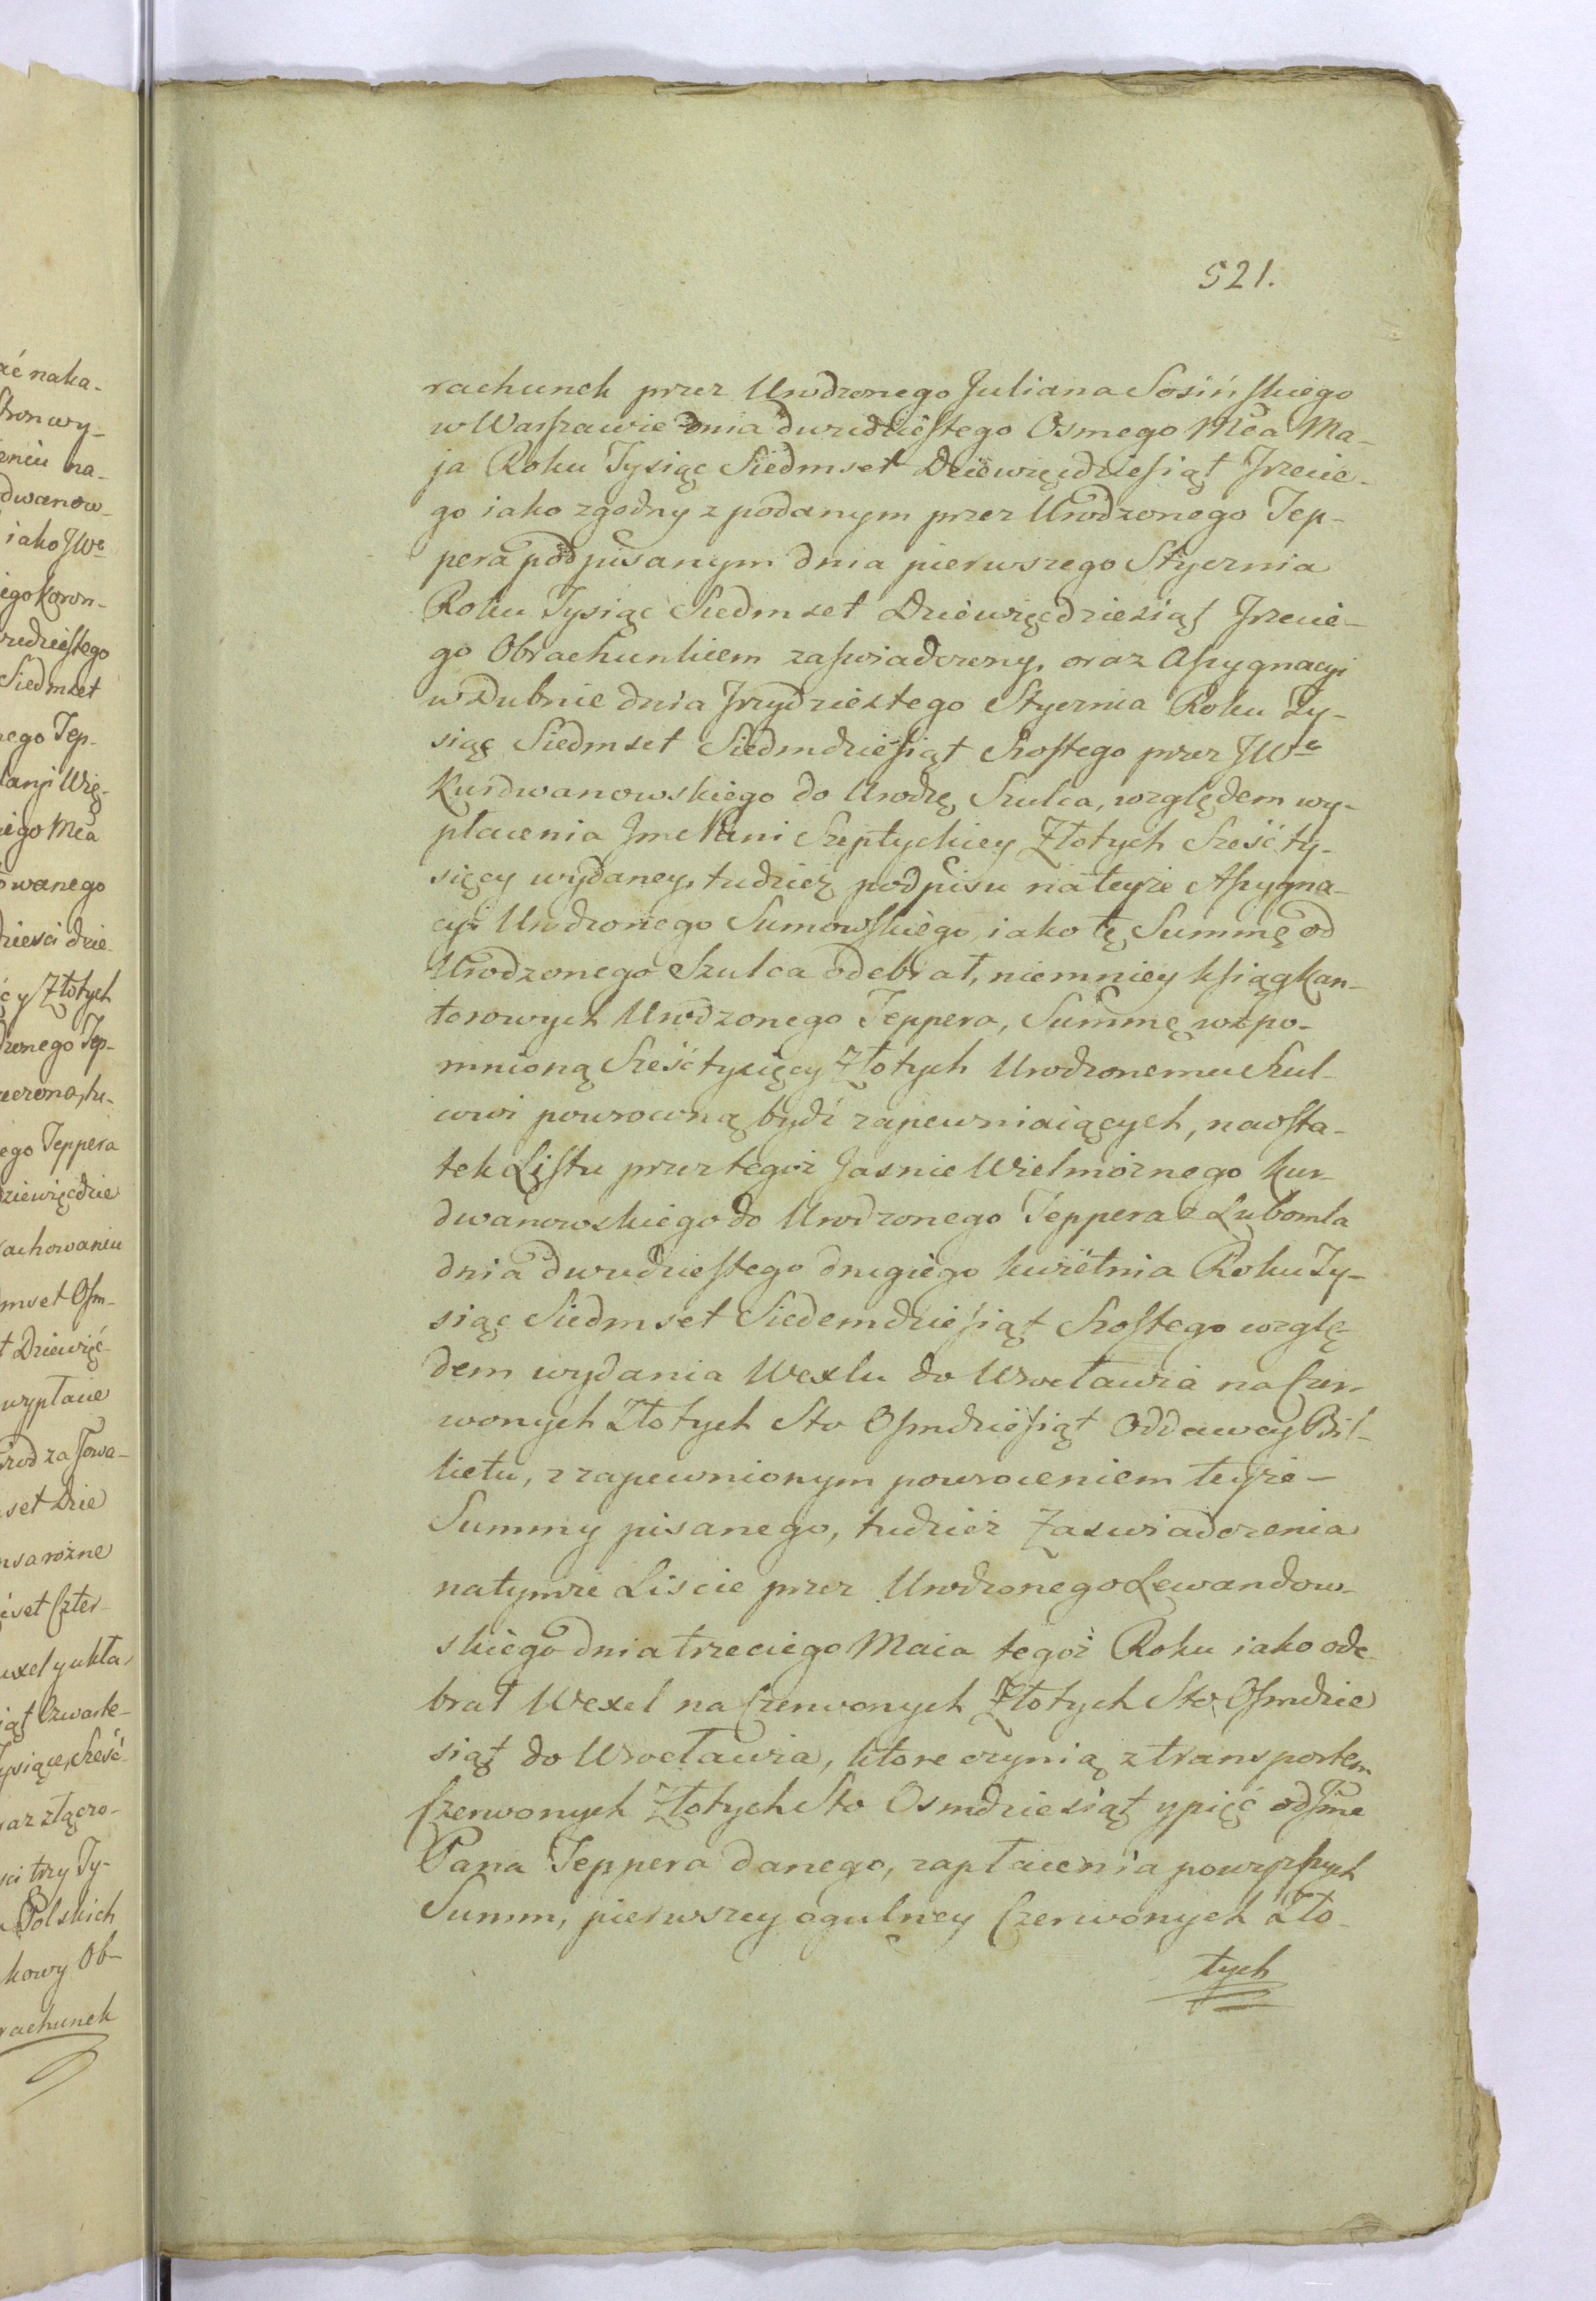 521.
rachunek przez Urodzonego Juliana Sosińskiego
w Warszawie dnia dwudziestego Osmego Mca Ma-
ja Roku Tysiąc Siedmset Dziewięćdziesiąt Trzecie-
go iako zgodny z podanym przez Urodzonego Tep-
pera podpisanym dnia pierwszego Stycznia
Roku Tysiąc Siedmset Dziewięcdziesiąt Trzecie-
go Obrachunkiem zaswiadczony, oraz Assygnacyi
w Dubnie dnia Trzydziestego Stycznia Roku Ty-
siąc Siedmset Siedmdziesiąt Szostego przez JWo
Kurdwanowskiego do Urodzo Szulca, względem wy-
płacenia Jme Pani Szeptyckiey Złotych Szesć ty-
sięcy wydaney, tudzież podpisu na teyże Assygna-
cyi Urodzonego Sumowskiego, iako tę Summę od
Urodzonego Szulca odebrał, niemniey ksiąg kan-
torowych Urodzonego Teppera, Summę wspo-
mnioną Sześć tysięcy Złotych Urodzonemu Szul-
cowi powroconą bydź zapewniaiących, naosta-
tek Listu przez tegoż Jasnie Wielmożnego Kur-
dwanowskiego do Urodzonego Teppera z Lubomla
dnia dwudziestego drugiego kwietnia Roku Ty-
siąc Siedmset Siedemdziesiąt Szostego wzglę-
dem wydania Wexlu do Wrocławia na Czer-
wonych Złotych Sto Osmdziesiąt Oddawcy Bil-
lietu, z zapewnionym powroceniem teyże-
Summy pisanego, tudzież Zaswiadczenia
na tymże Liscie przez Urodzonego Lewandow-
skiego dnia trzeciego Maia tegoż Roku iako ode-
brał Wexel na Czerwonych Złotych Sto Osmdzie
siąt do Wrocławia, ktore czynią z transportem
Czerwonych Złotych Sto Osmdziesiąt y pięć od Jme
Pana Teppera danego, zapłacenia powyższych
Summ, pierwszey ogulney Czerwonych Zło-
tych
ać naka-
Stron wy-
na-
dwanow-
iako JWo
iego Koron-
udziestego
Siedmset
nego Tep-
Wię-
iego Mca
owanego
dziesci dzie-
ęcy Złotych
dzonego Tep-
tu-
ego Teppera
Dziewięcdzie
achowaniu
mset Osm-
t Dziewięć-
wypłacie
set Dzie
rożne
set Czter-
wexel y ukła-
iąt Czwarte-
Tysiące Sześć-
az złączo-
sci trzy Ty-
Polskich
kowy Ob-
rachunek